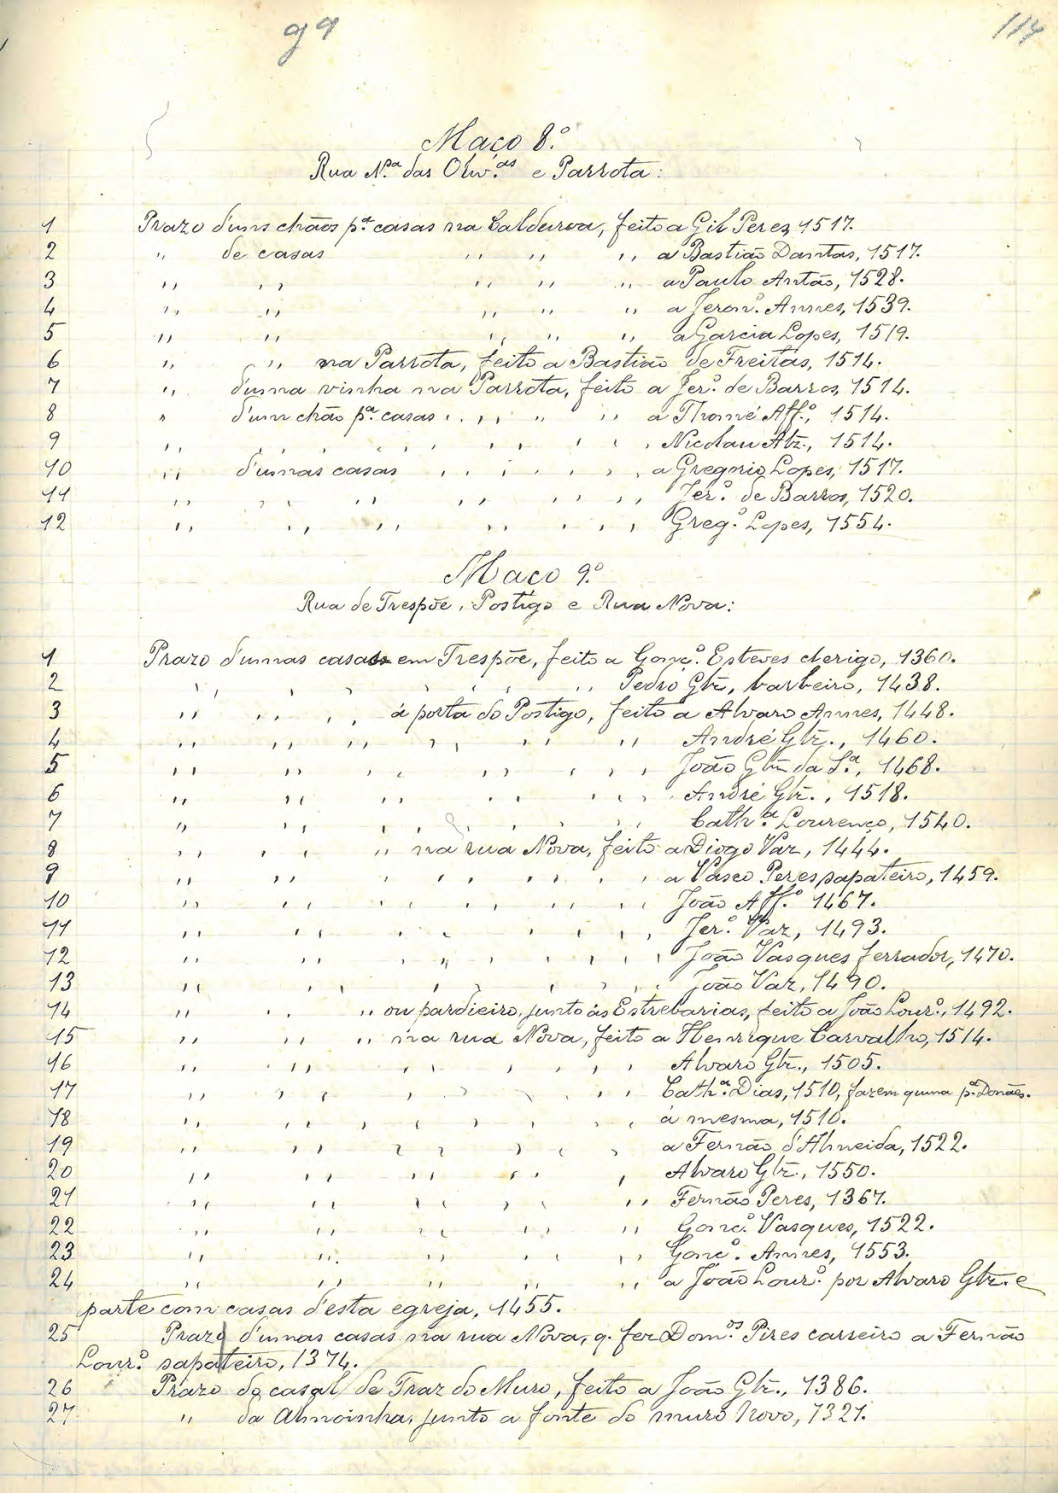 99
114
Maço 8.º
Rua N.ª das Oliv.as e Parrota:
1 Prazo d'uns chãos p.ª casas na Caldeiroa, feito a Gil Peres, 1517.
2 " de casas " " " a Bastião Dantas, 1517.
3 " " " " " a Paulo Antão, 1528.
4 " " " " " a Jeron.º Annes, 1539.
5 " " " " " a Garcia Lopes, 1519.
6 " " na Parrota, feito a Bastião de Freitas, 1514.
7 " d'uma vinha na Parrota, feito a Jer.º de Barros, 1514.
8 " d'um chão p.ª casas " " " " a Thomé Aff.º, 1514.
9 " " " " " " " " Nicolau Alz., 1514.
10 " d'umas casas " " " " " a Gregorio Lopes, 1517.
11 " " " " " " " " Jer.º de Barros, 1520.
12 " " " " " " " Greg.º Lopes, 1554.
Maço 9.º
Rua de Trespõe, Postigo e Rua Nova:
1 Prazo d'umas casas em Trespõe, feito a Gonç.º Esteves clerigo, 1360.
2 " " " " " " " Pedro Glz, barbeiro, 1438.
3 " " " á porta do Postigo, feito a Alvaro Annes, 1448.
4 " " " " " " " André Glz., 1460.
5 " " " " " " " João Glz da S.ª, 1468.
6 " " " " " " " André Glz., 1518.
7 " " " " " " " Cath.ª Lourenço, 1540.
8 " " " " na rua Nova, feito a Diogo Vaz, 1444.
9 " " " " " " " a Vasco Peres sapateiro, 1459.
10 " " " " " " " João Aff.º 1467.
11 " " " " " " " Jer.º Vaz, 1493.
12 " " " " " " " João Vasques ferrador, 1470.
13 " " " " " " " João Vaz, 1490.
14 " " " " ou pardieiro, junto ás Estrebarias, feito a João Lour.º, 1492.
15 " " " " na rua Nova, feito a Henrique Carvalho, 1514.
16 " " " " " " " Alvaro Glz., 1505.
17 " " " " " " " Cath.ª Dias, 1510, fazem quina p.ª Donães.
18 " " " " " " " á mesma, 1510.
19 " " " " " " " a Fernão d'Almeida, 1522.
20 " " " " " " Alvaro Glz, 1550.
21 " " " " " " Fernão Peres, 1367.
22 " " " " " " Gonç.º Vasques, 1522.
23 " " " " " " Gonç.º Annes, 1553.
24 " " " " " a João Lour.º por Alvaro Glz. e
parte com casas d'esta egreja, 1455.
25 Prazo d'umas casas na rua Nova, q. fez Dom.os Pires carreiro a Fernão
Lour.º sapateiro, 1374.
26 Prazo do casal de Traz do Muro, feito a João Glz., 1386.
27 " da Almoinha, junto a fonte do muro Novo, 1321.